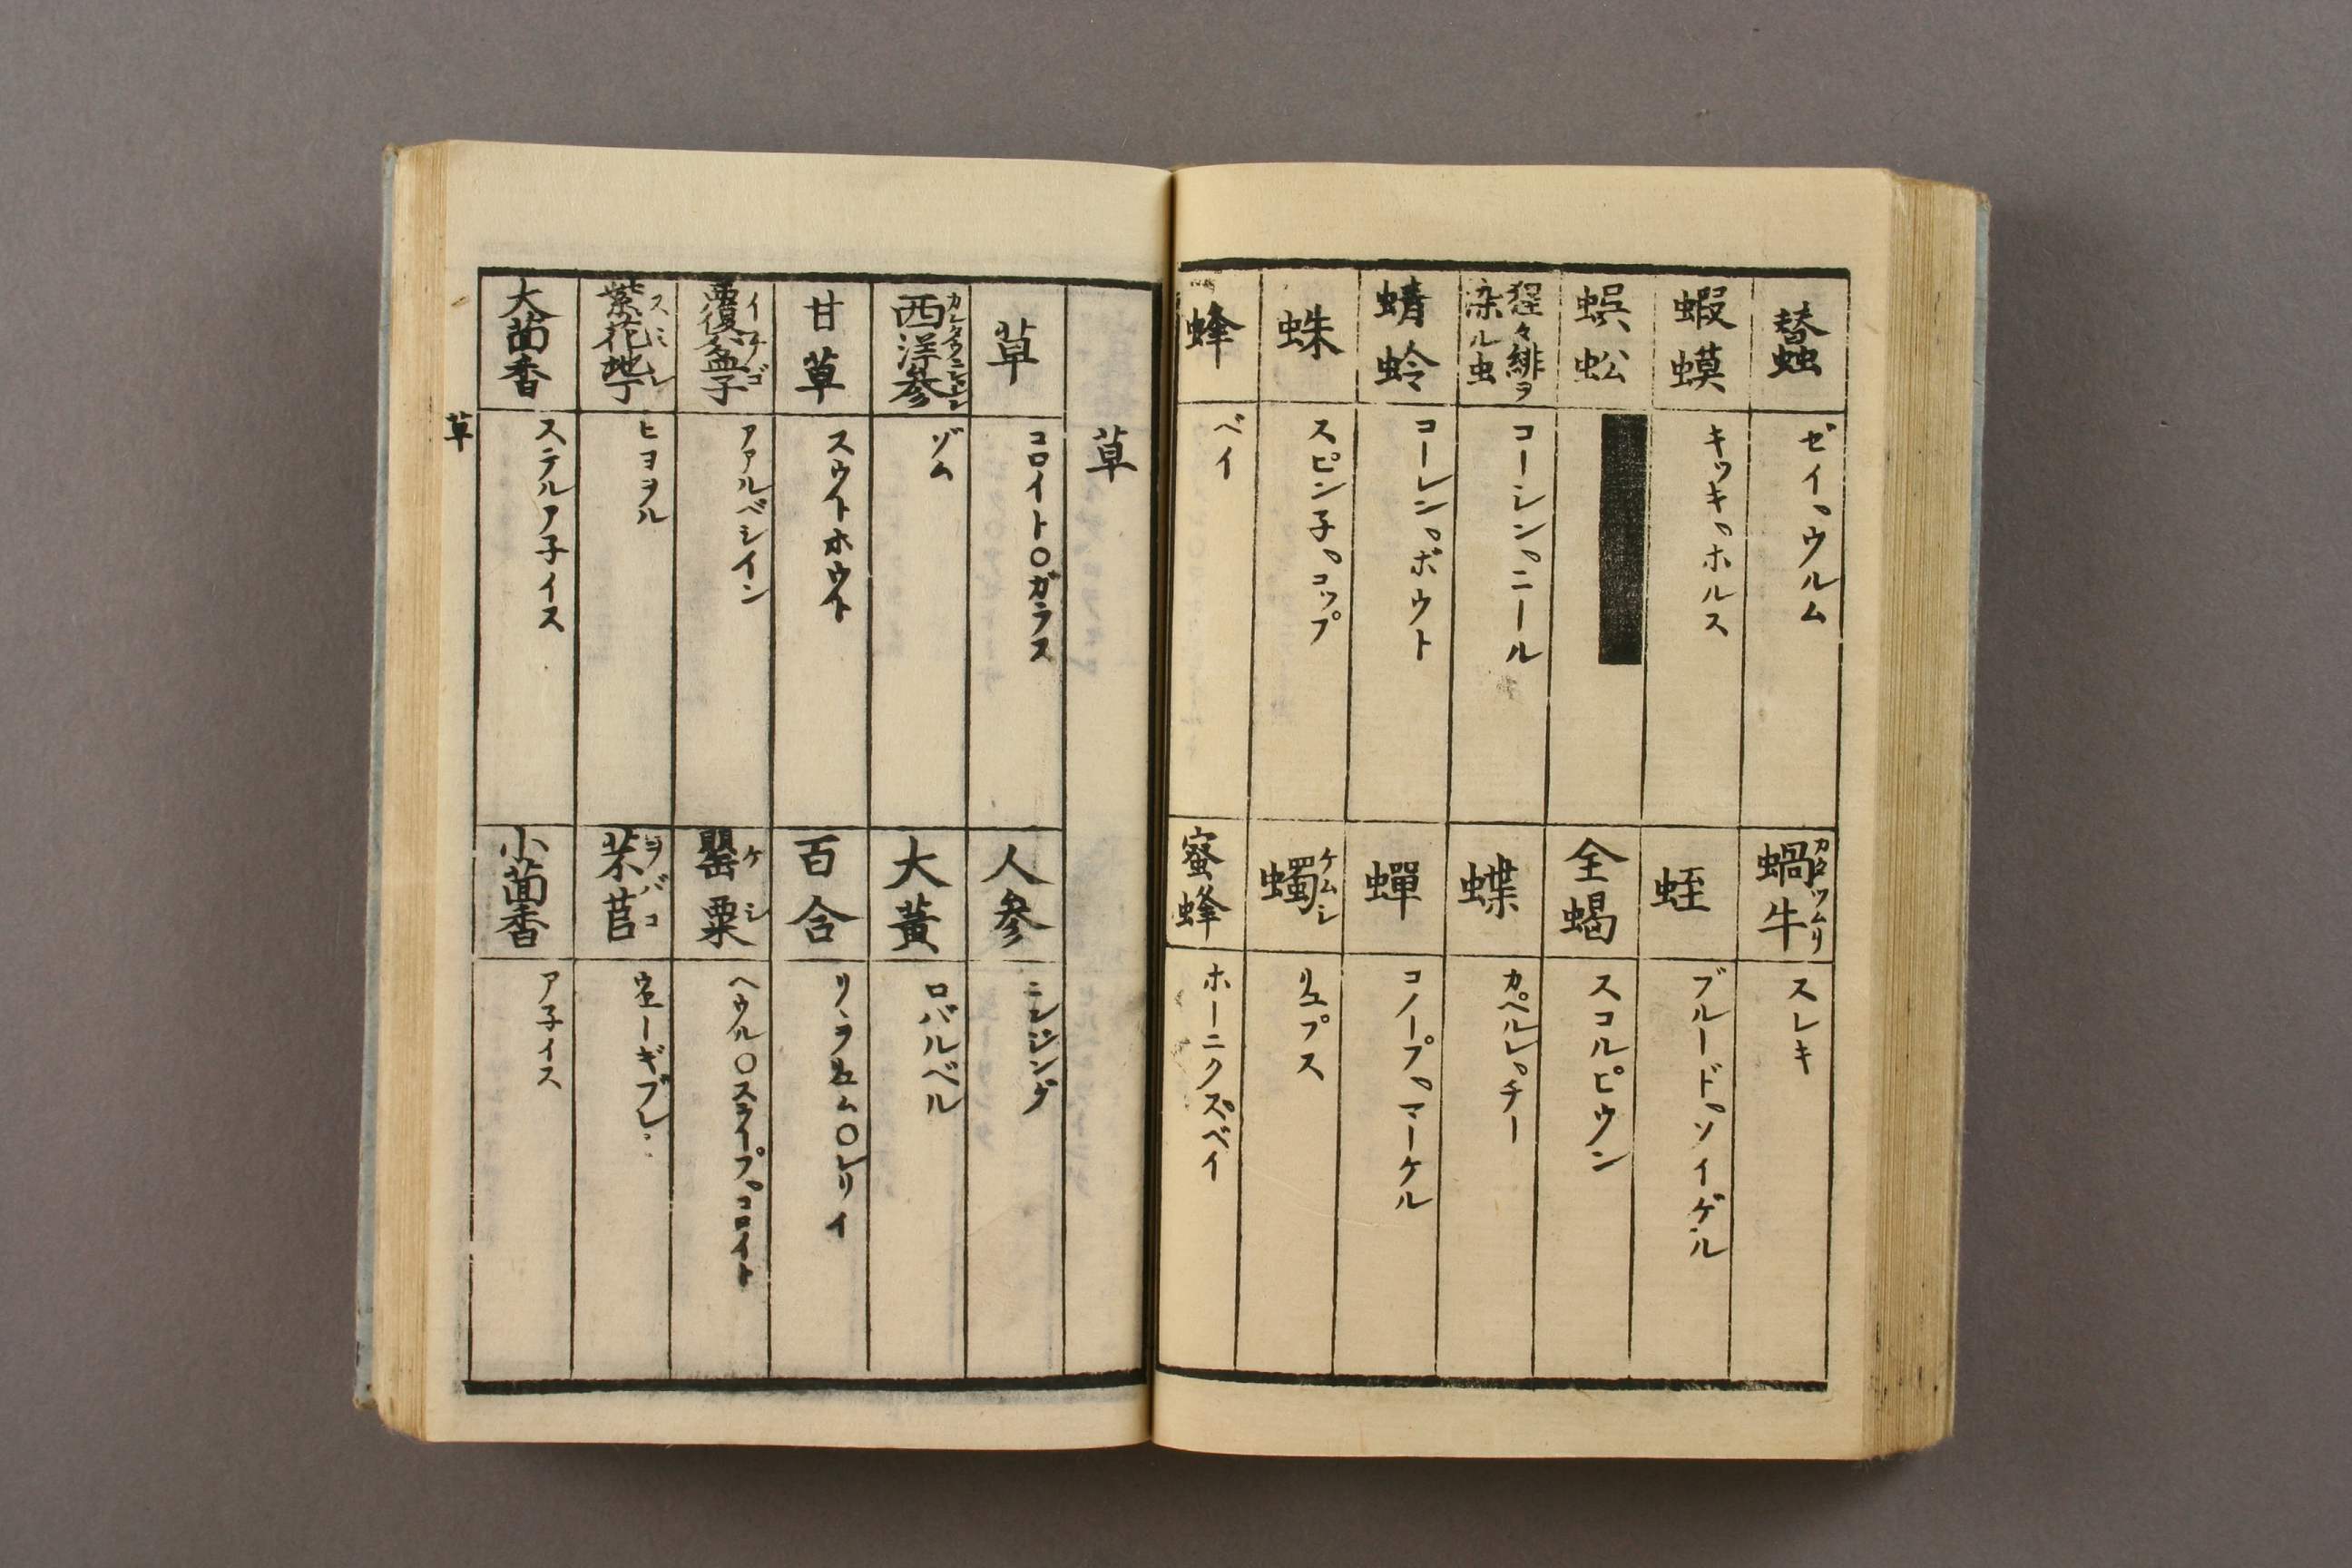 蠶 ゼイ、ウルム
蝦蟇 キッキ、ホルス
蜈蚣
猩々緋ヲ染ル虫 コーシン、ニール
蜻蛉 コーレン、ボウト
蛛 スピン子、コップ
蜂 ベイ
蝸牛 カタツムリ スレキ
蛭 ブルード、ソイゲル
全蝎 スコルピウン
蝶 カペルレ、チー
蟬 コノープ、マーケル
蠋 ケムシ リュプス
蜜蜂 ホーニクスベイ
草
草 コロイト〇ガラス
西洋參 ゾム
甘草 スウトホウト
覆盆子 イチゴ アアルベシイン
紫花地丁 スミレ ヒヨヲル
大茴香 ステルア子イス
人參 ニンジング
大黃 ロバルベル
百合 リ、ラリュム〇レリイ
罌粟 ケシ ヘウル〇スライプ、コロイト
芣苢 ヲバコ ウエーギブレ
小茴香 ア子イス
草